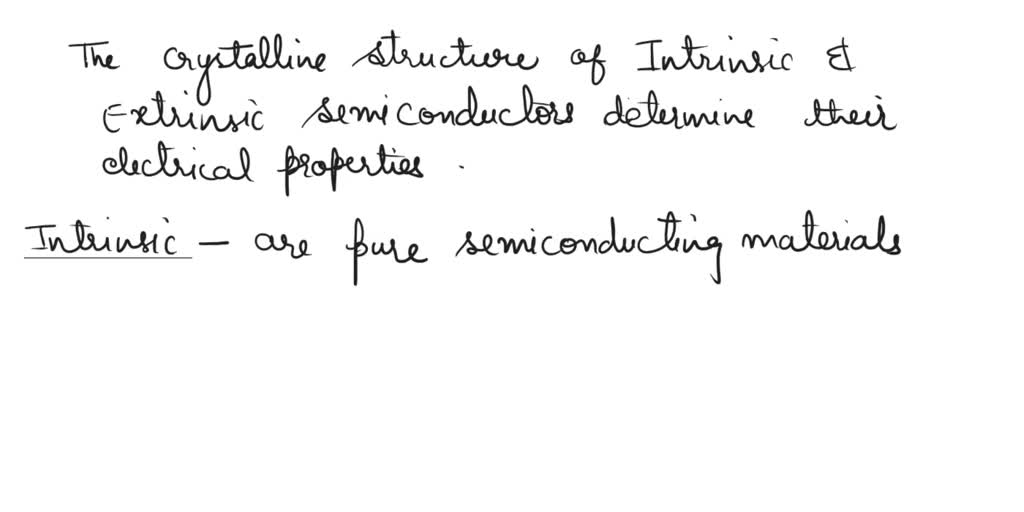 The crystalline structure of Intrinsic &
Extrinsic semiconductors determine their
electrical properties.
Intrinsic – are pure semiconducting materials